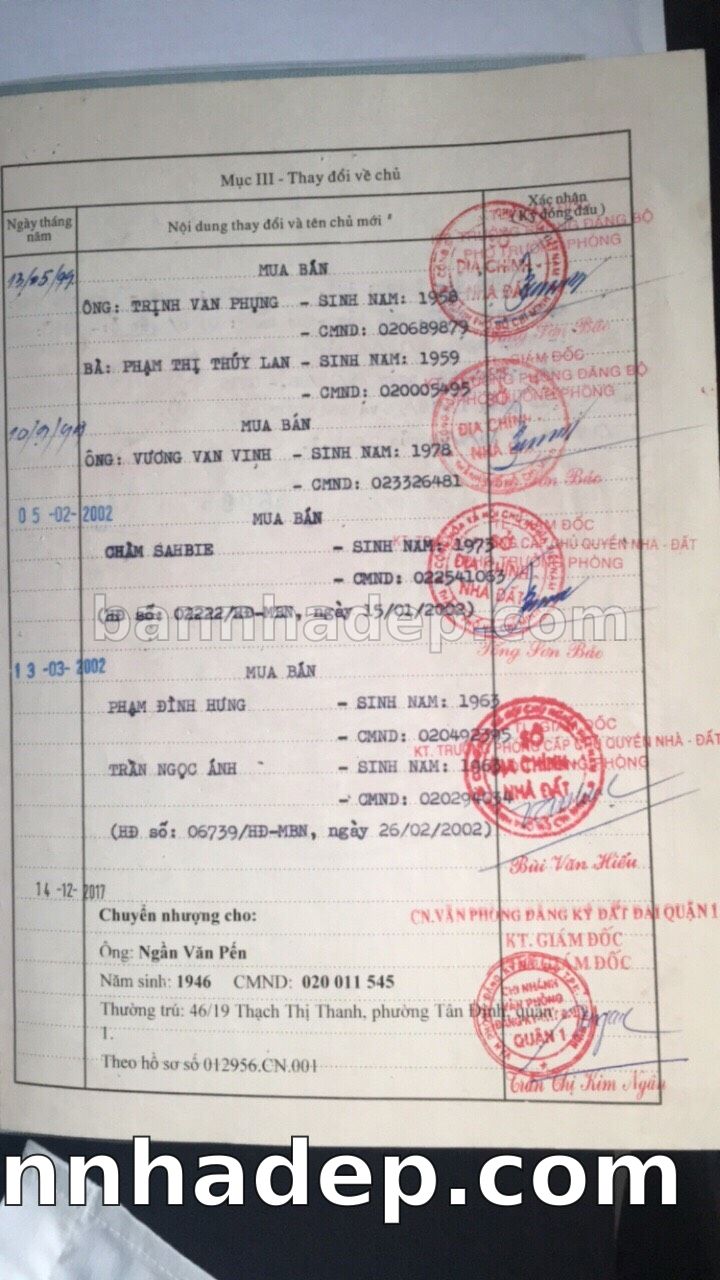 Mục III - Thay đổi về chủ
Ngày tháng năm
Nội dung thay đổi và tên chủ mới
Xác nhận
(Ký đóng dấu)
13/05/99
MUA BÁN
ÔNG: TRỊNH VĂN PHỤNG - SINH NĂM: 1958
- CMND: 020689879
BÀ: PHẠM THỊ THÚY LAN - SINH NĂM: 1959
- CMND: 020005495
PHÓ TRƯỞNG PHÒNG
ĐỊA CHÍNH
NHÀ ĐẤT
MUA BÁN
ÔNG: VƯƠNG VĂN VINH - SINH NĂM: 1978
- CMND: 023326481
GIÁM ĐỐC
PHÒNG ĐĂNG BỘ
ĐỊA CHÍNH
NHÀ ĐẤT
05-02-2002
MUA BÁN
CHÀM SAHBIE - SINH NĂM: 1973
- CMND: 022541063
(HĐ số: 02222/HĐ-MBN, ngày 15/01/2002)
GIÁM ĐỐC
CẤP CHỦ QUYỀN NHÀ - ĐẤT
TRƯỞNG PHÒNG
ĐỊA CHÍNH
NHÀ ĐẤT
Tống Sơn Bảo
bannhadep.com
13-03-2002
MUA BÁN
PHẠM ĐÌNH HƯNG - SINH NĂM: 1963
- CMND: 020492395
TRẦN NGỌC ÁNH - SINH NĂM: 1963
- CMND: 020294034
(HĐ số: 06739/HĐ-MBN, ngày 26/02/2002)
KT. TRƯỞNG PHÒNG CẤP CHỦ QUYỀN NHÀ - ĐẤT
SỞ
ĐỊA CHÍNH
NHÀ ĐẤT
Bùi Văn Hiếu
14-12-2017
Chuyển nhượng cho:
Ông: Ngần Văn Pến
Năm sinh: 1946 CMND: 020 011 545
Thường trú: 46/19 Thạch Thị Thanh, phường Tân Định, quận
1.
Theo hồ sơ số 012956.CN.001
CN.VĂN PHÒNG ĐĂNG KÝ ĐẤT ĐAI QUẬN 1
KT. GIÁM ĐỐC
GIÁM ĐỐC
CHI NHÁNH
VĂN PHÒNG
QUẬN 1
Trần Thị Kim Ngân
nnhadep.com